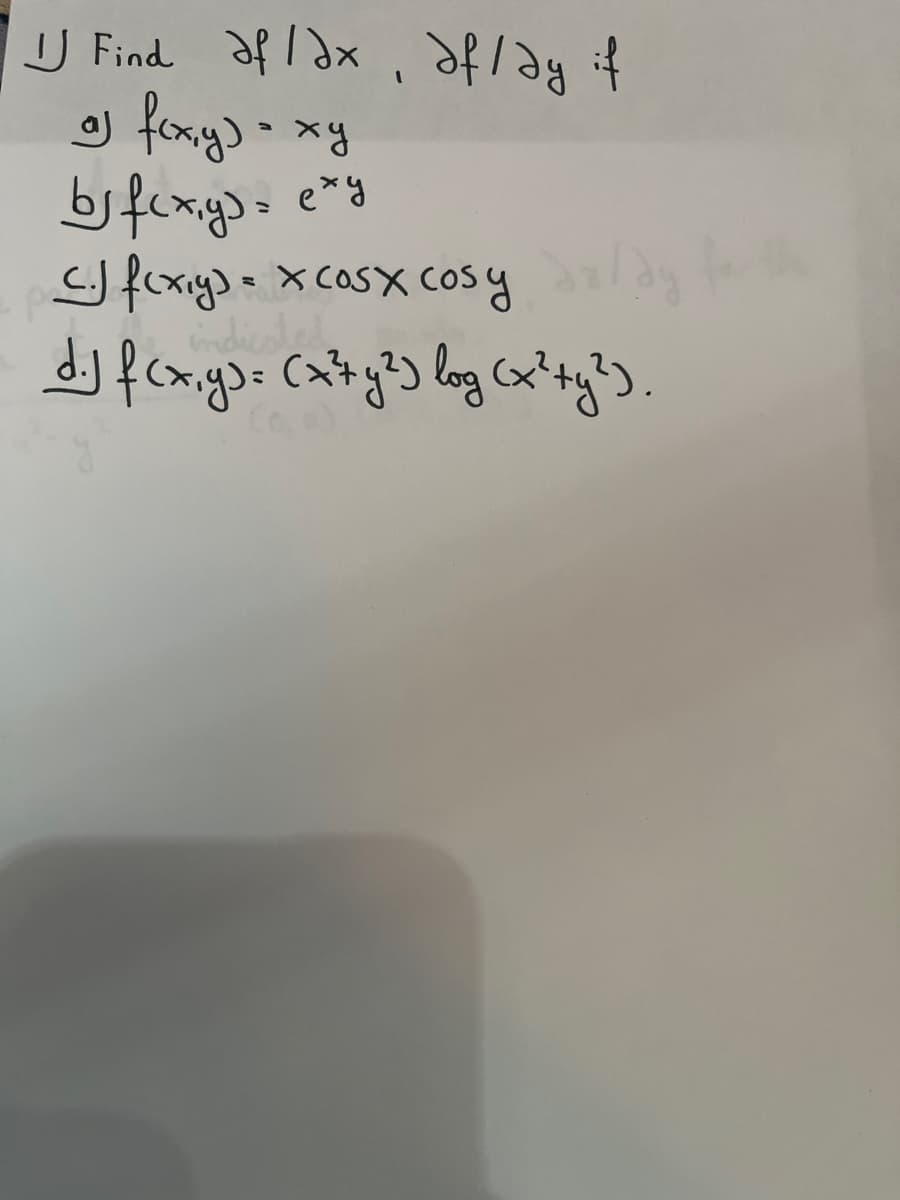 1) Find ∂f/∂x, ∂f/∂y if
a) f(x,y) = xy
b) f(x,y) = e^xy
c.) f(x,y) = x cosx cosy
d.) f(x,y) = (x²+y²) log (x²+y²).